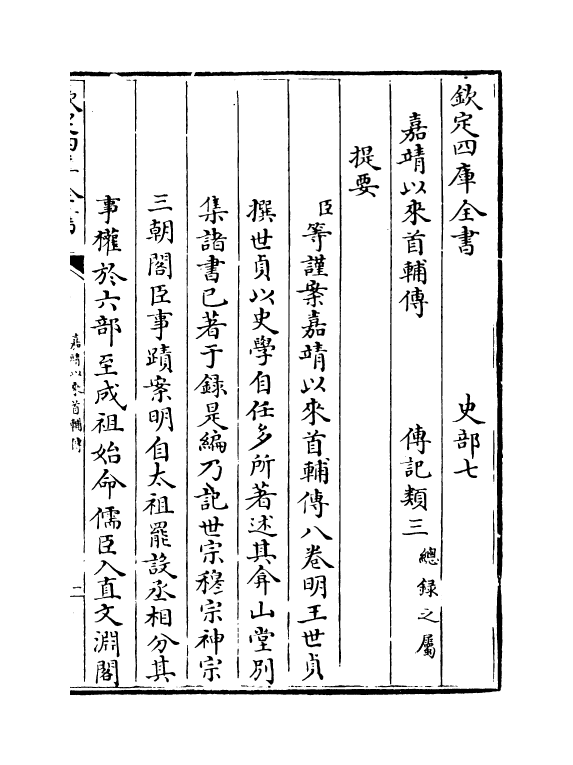 欽定四庫全書　史部七
嘉靖以來首輔傳　傳記類三 總錄之屬
提要
臣等謹案嘉靖以來首輔傳八卷明王世貞
撰世貞以史學自任多所著述其弇山堂别
集諸書已著于録是編乃記世宗穆宗神宗
三朝閣臣事蹟案明自太祖罷設丞相分其
事權於六部至成祖始命儒臣入直文淵閣
欽定四庫全書
嘉靖以來首輔傳